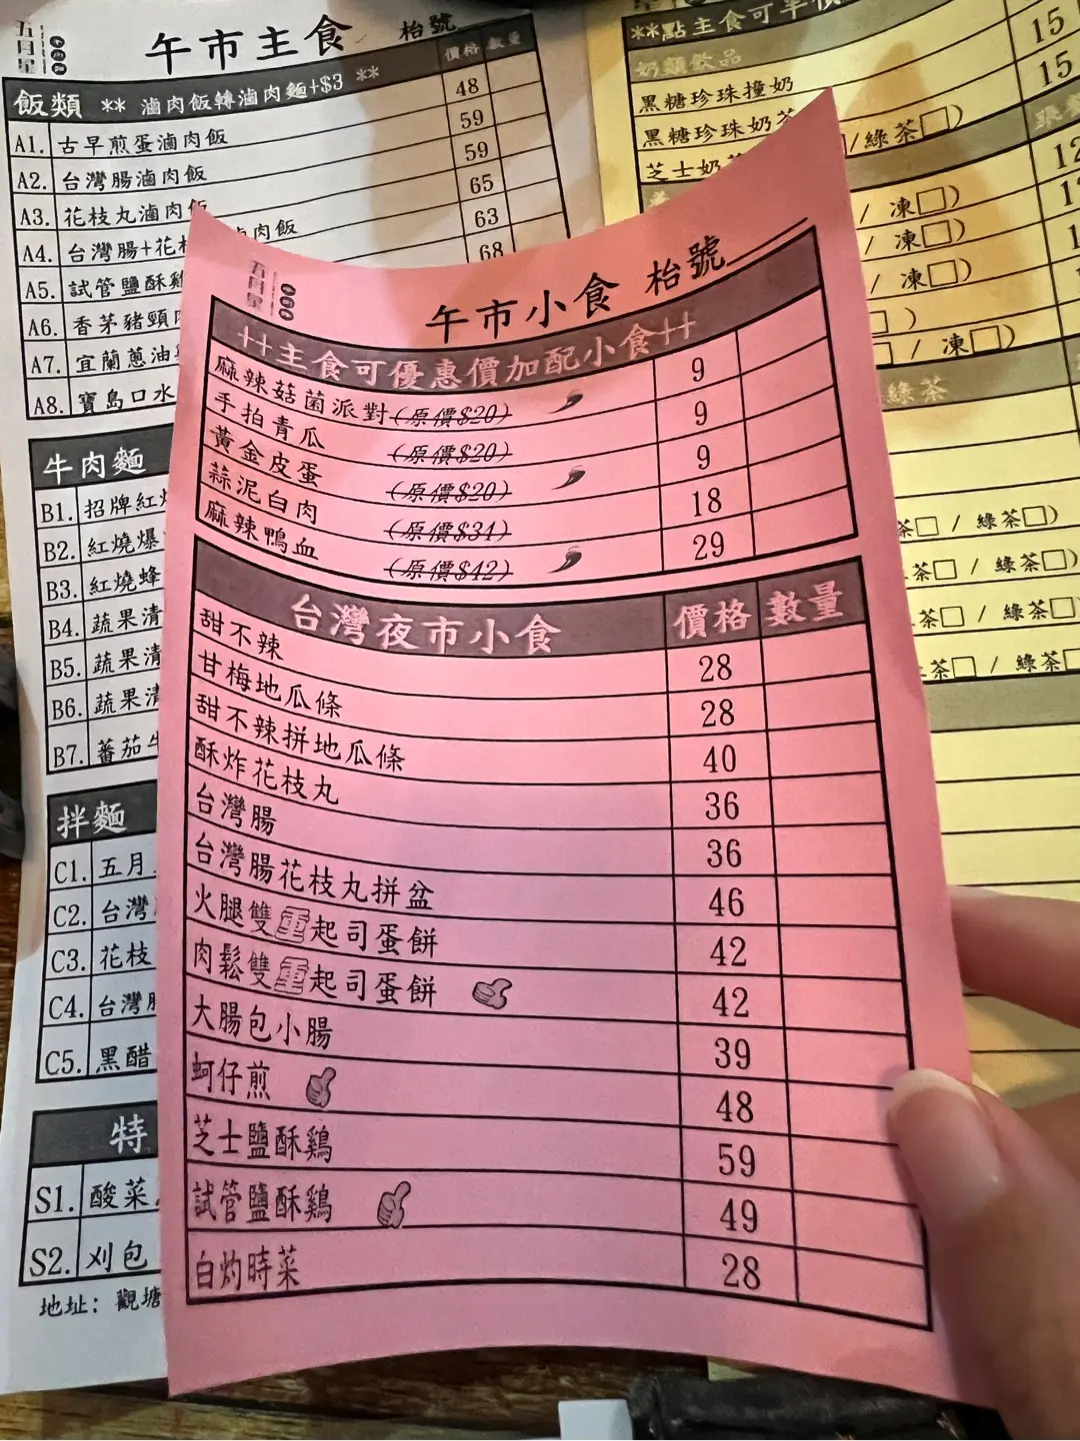 五月星
午市主食 枱號
飯類 ** 滷肉飯轉滷肉麵+$3 ** 價格 數量
A1. 古早煎蛋滷肉飯 48
A2. 台灣腸滷肉飯 59
A3. 花枝丸滷肉飯 59
A4. 台灣腸+花枝 滷肉飯 65
A5. 試管鹽酥雞 63
A6. 香茅豬頸肉 68
A7. 宜蘭蔥油
A8. 寶島口水
牛肉麵
B1. 招牌紅燒
B2. 紅燒爆
B3. 紅燒蜂
B4. 蔬果清
B5. 蔬果清
B6. 蔬果清
B7. 蕃茄牛
拌麵
C1. 五月
C2. 台灣
C3. 花枝
C4. 台灣腸
C5. 黑醋
特
S1. 酸菜
S2. 刈包
地址: 觀塘
**點主食可半價
奶類飲品
黑糖珍珠撞奶 15
黑糖珍珠奶茶 /綠茶□) 15
芝士奶
/ 凍□) 12
/ 凍□)
/ 凍□)
□)
□ / 凍□)
綠茶
茶□ / 綠茶□)
茶□ / 綠茶□)
茶□ / 綠茶□)
茶□ / 綠茶□)
五月星
午市小食 枱號
++主食可優惠價加配小食++
麻辣菇菌派對(原價$20) 9
手拍青瓜 (原價$20) 9
黃金皮蛋 (原價$20) 9
蒜泥白肉 (原價$34) 18
麻辣鴨血 (原價$42) 29
台灣夜市小食 價格 數量
甜不辣 28
甘梅地瓜條 28
甜不辣拼地瓜條 40
酥炸花枝丸 36
台灣腸 36
台灣腸花枝丸拼盆 46
火腿雙重起司蛋餅 42
肉鬆雙重起司蛋餅 42
大腸包小腸 39
蚵仔煎 48
芝士鹽酥鷄 59
試管鹽酥鷄 49
白灼時菜 28